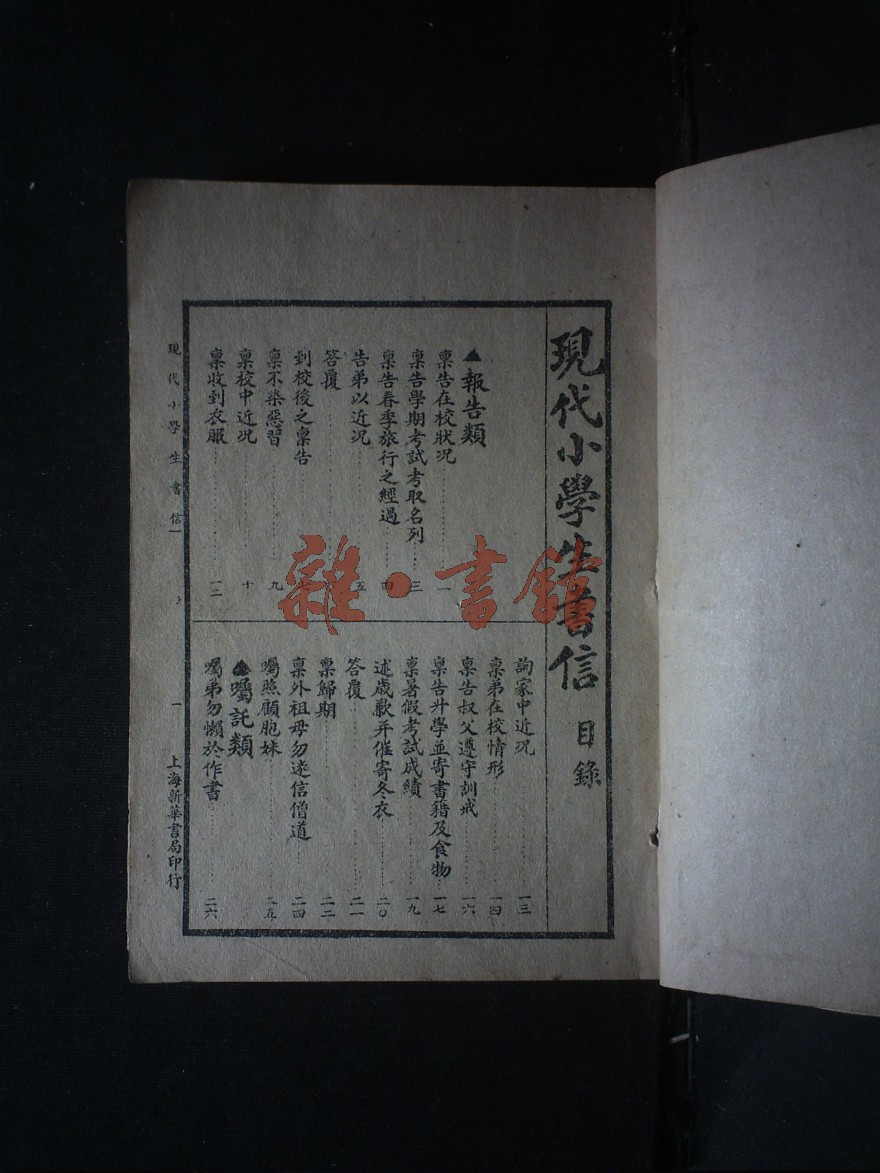 現代小學生書信 目錄
▲報告類
稟告在校狀况 一
稟告學期考試考取名列 三
稟告春季旅行之經過 四
告弟以近况 五
答覆
到校後之稟告 七
稟不染惡習 九
稟校中近况 十
稟收到衣服 一二
詢家中近况 一三
稟弟在校情形 一四
稟告叔父遵守訓戒 一六
稟告升學並寄書籍及食物 一七
稟暑假考試成績 一九
述歲歉并催寄冬衣 二〇
答覆 二一
稟歸期 二二
稟外祖母勿迷信僧道 二四
囑照顧胞妹 二五
▲囑託類
囑弟勿懶於作書 二六
現代小學生書信 一
上海新華書局印行
雜·書館